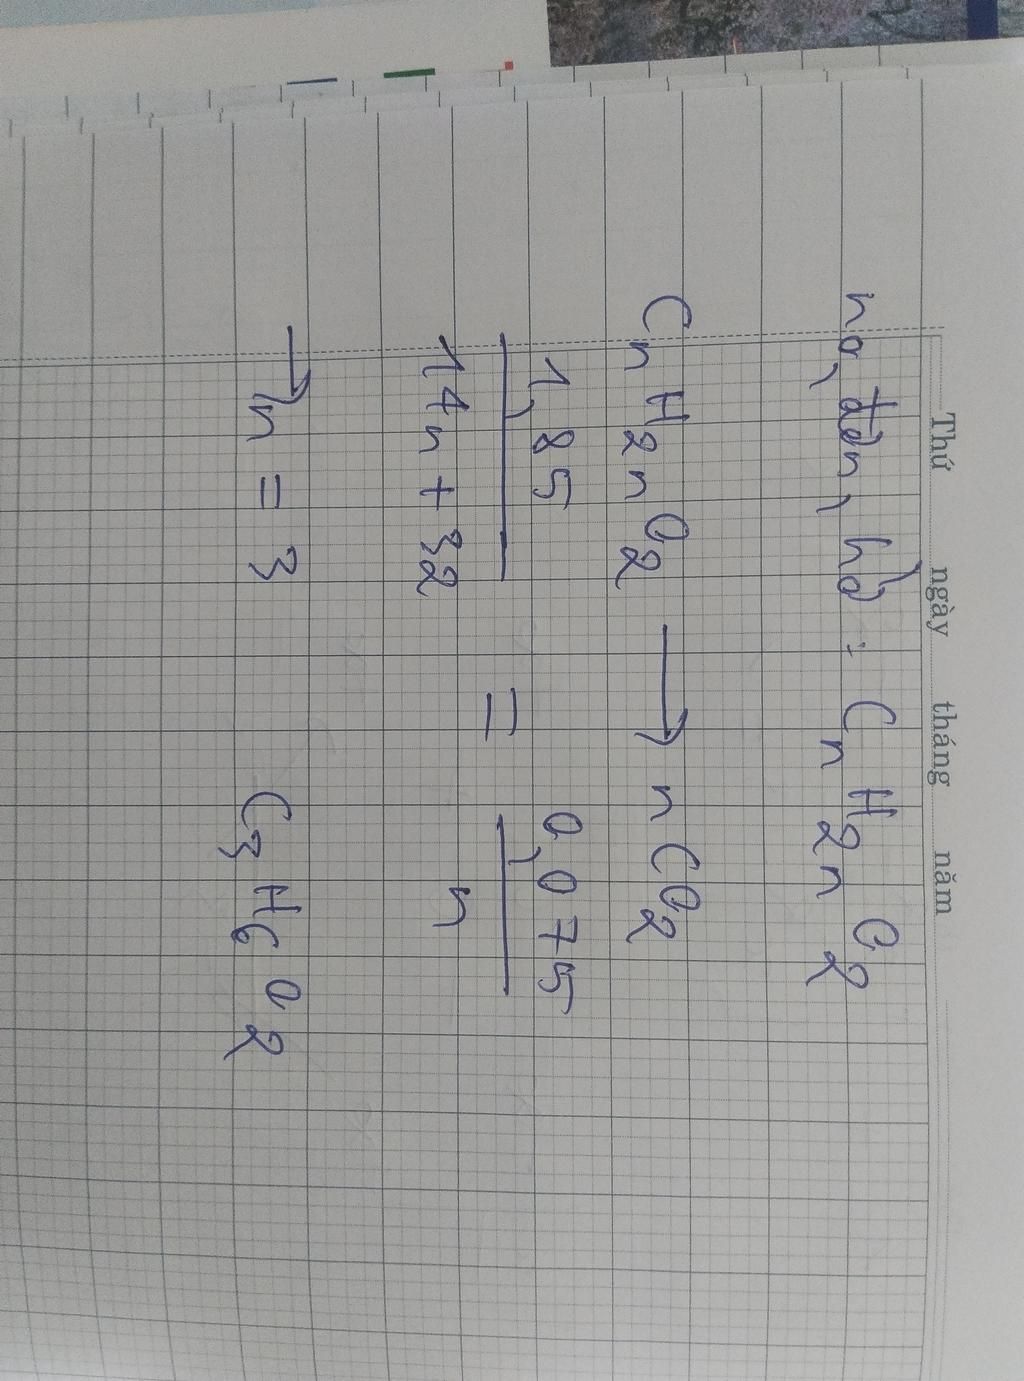 Thứ ngày tháng năm
no, đơn, hở : CnH2nO2
CnH2nO2 → nCO2
1,85 / 14n + 32 = 0,075 / n
→ n = 3 C3H6O2